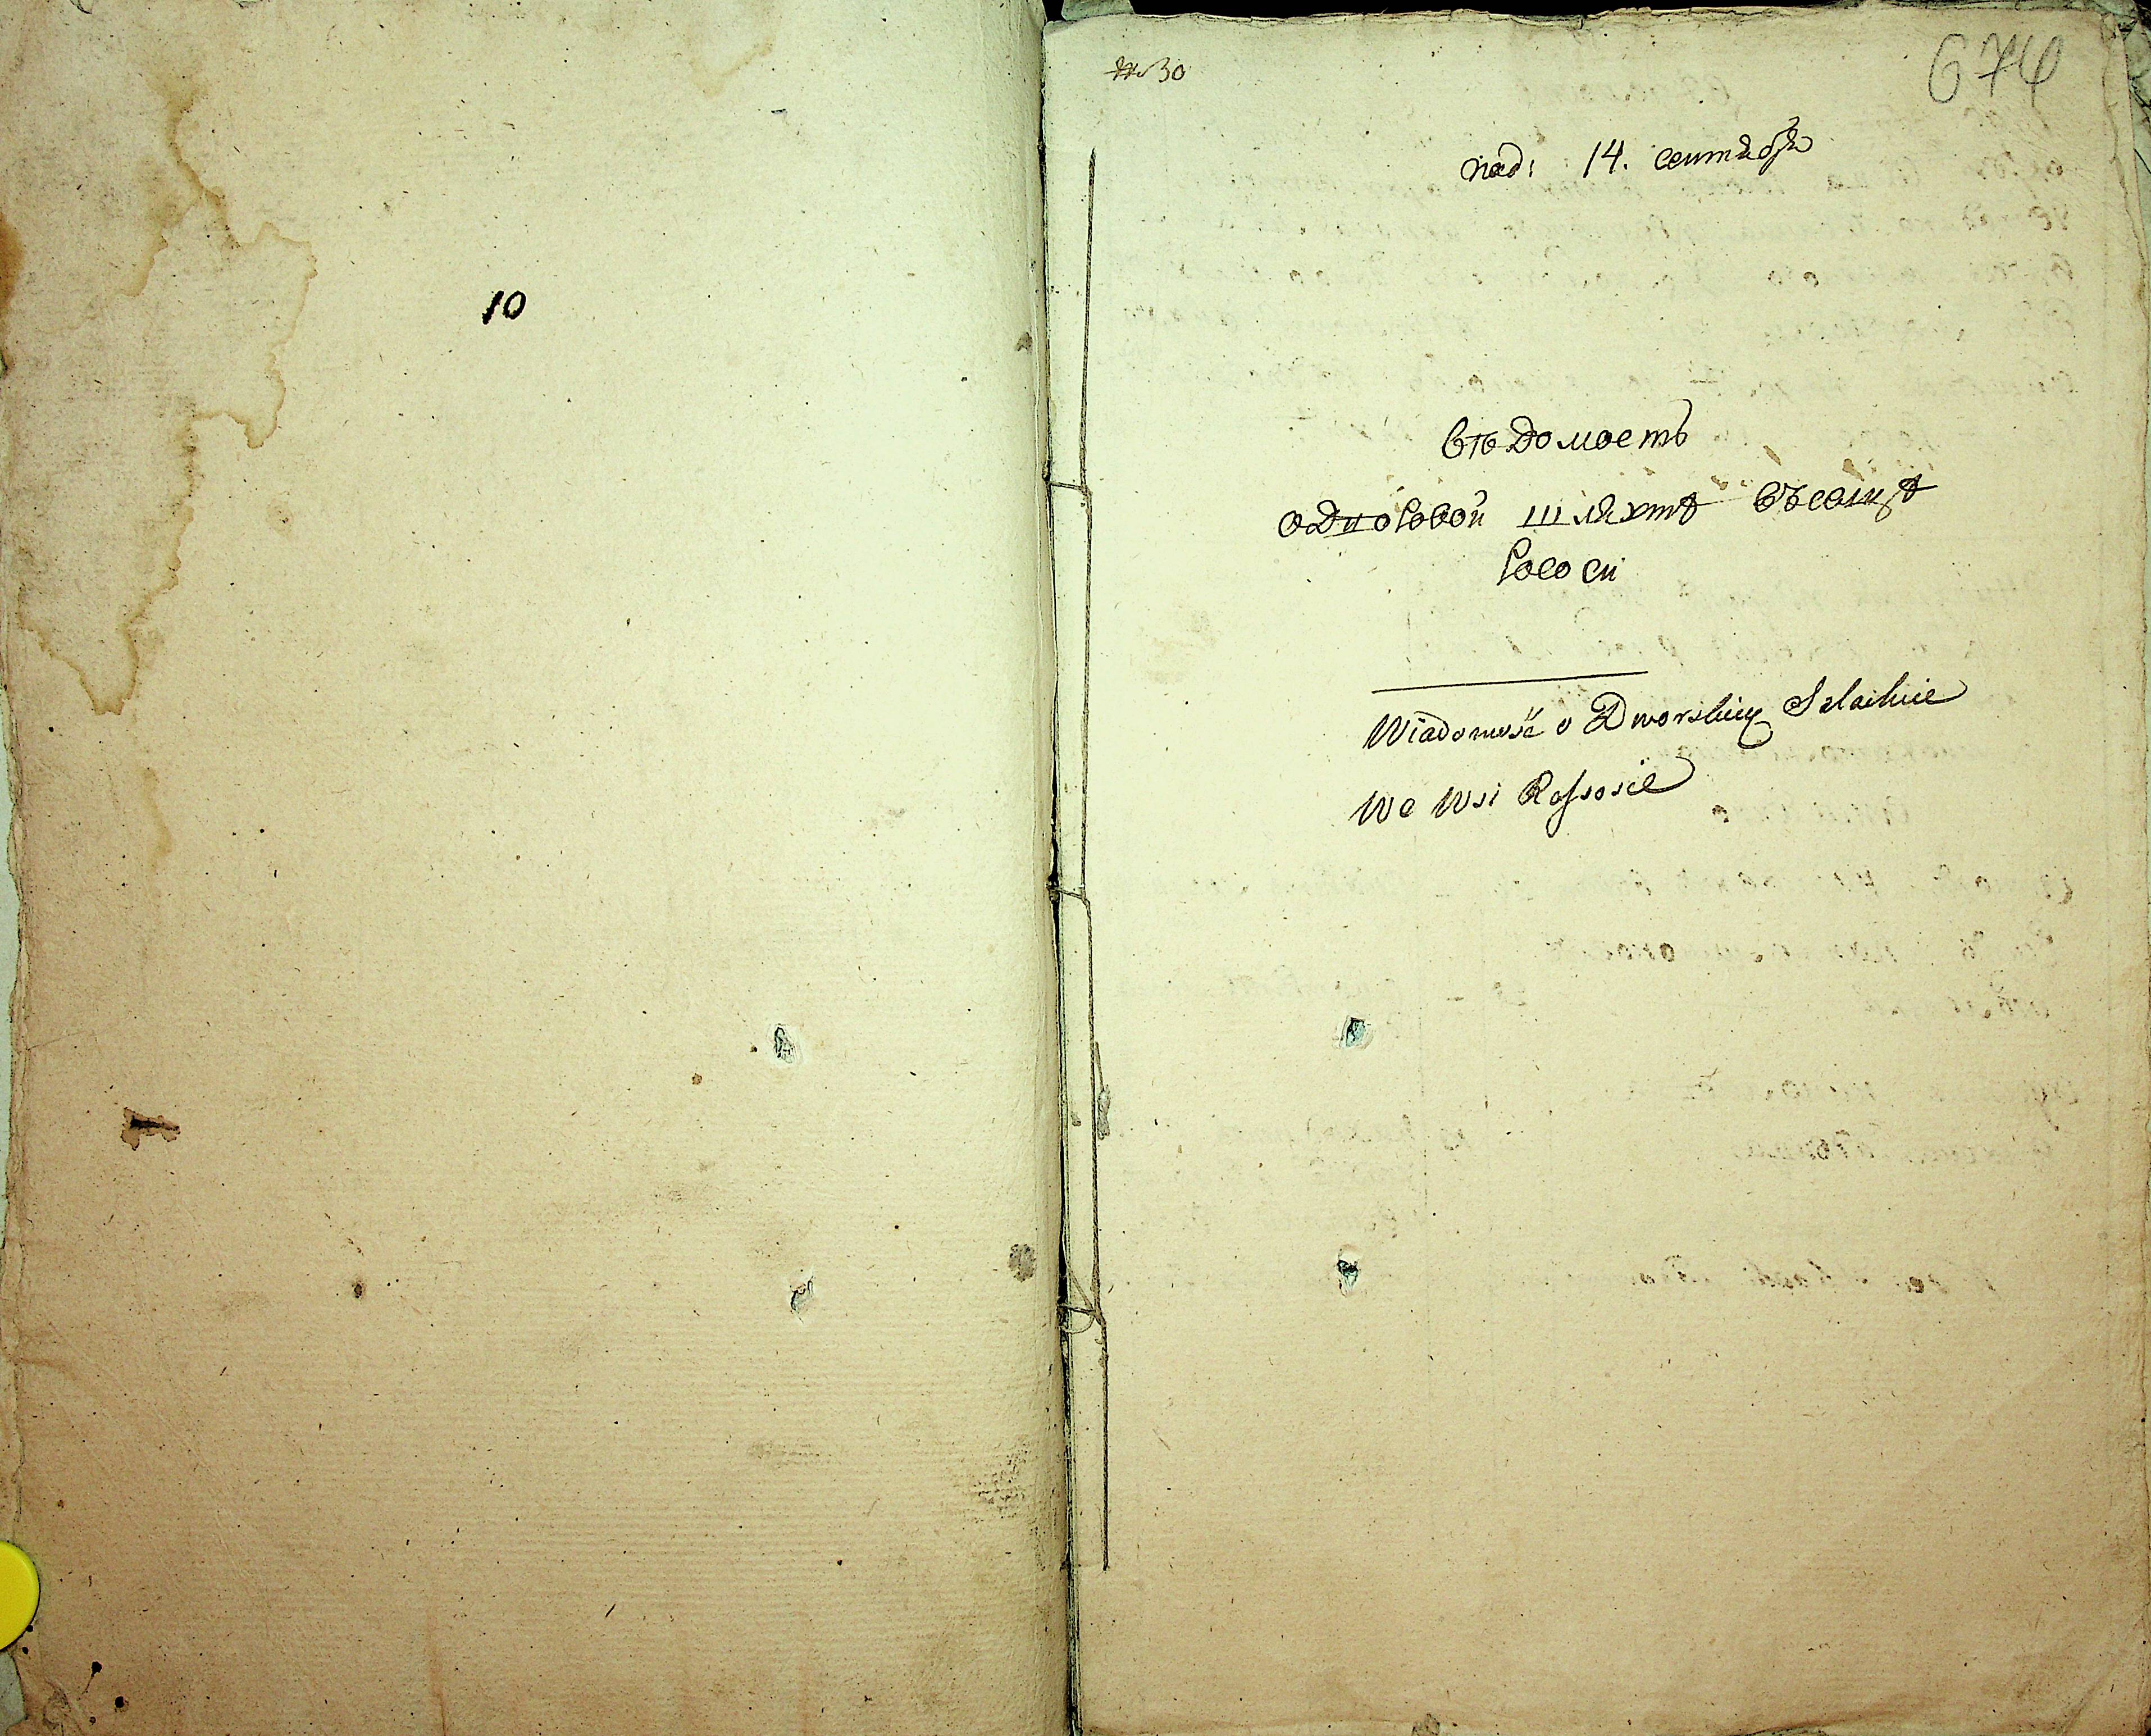 10
№ 30
674
под: 14. сентября
Вѣдомость
о дворовой шляхтѣ въ селцѣ
Рососи
Wiadomość o Dworskiey Szlachcie
We Wsi Rossosie